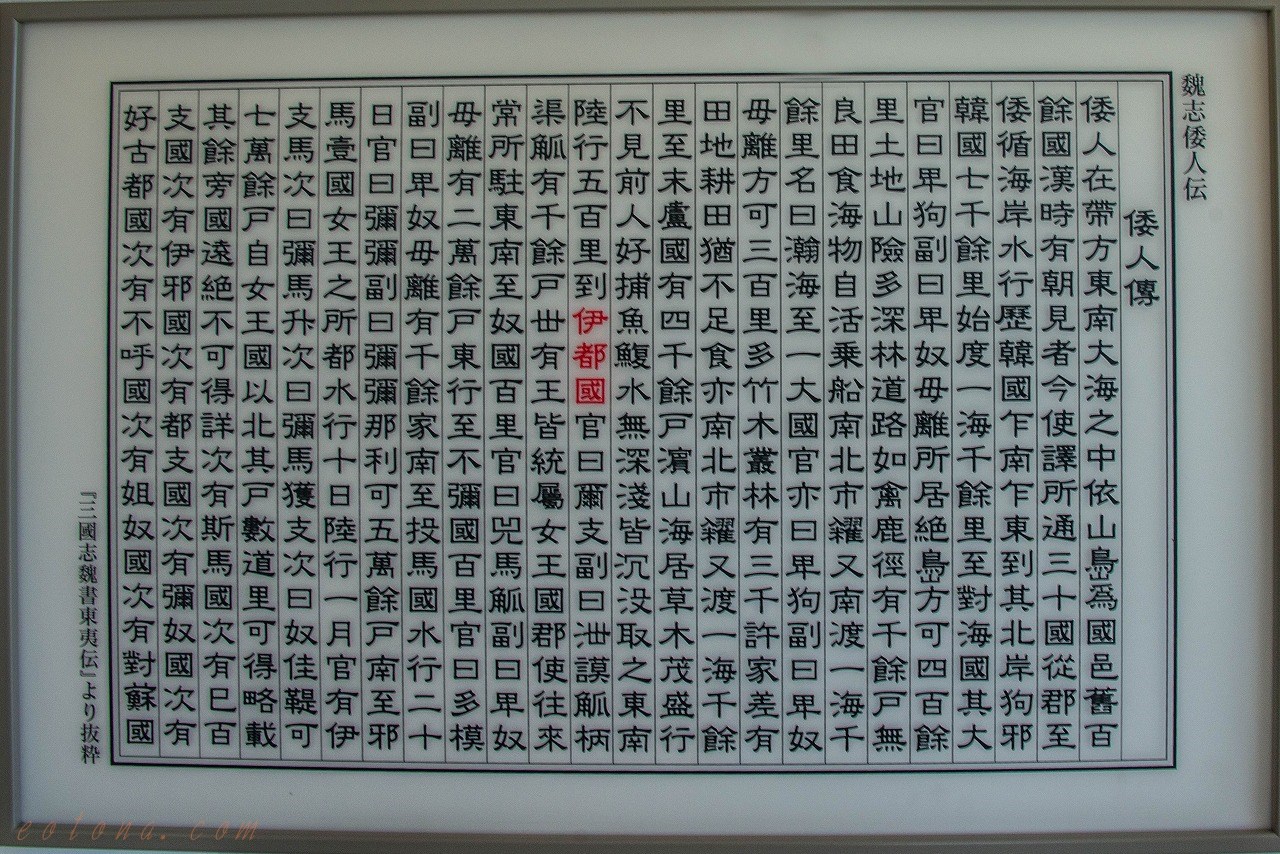 魏志倭人伝
倭人傳
倭人在帶方東南大海之中依山島爲國邑舊百
餘國漢時有朝見者今使譯所通三十國從郡至
倭循海岸水行歷韓國乍南乍東到其北岸狗邪
韓國七千餘里始度一海千餘里至對海國其大
官曰卑狗副曰卑奴毋離所居絶島方可四百餘
里土地山險多深林道路如禽鹿徑有千餘戸無
良田食海物自活乗船南北市糴又南渡一海千
餘里名曰瀚海至一大國官亦曰卑狗副曰卑奴
毋離方可三百里多竹木叢林有三千許家差有
田地耕田猶不足食亦南北市糴又渡一海千餘
里至末盧國有四千餘戸濱山海居草木茂盛行
不見前人好捕魚鰒水無深淺皆沉没取之東南
陸行五百里到伊都國官曰爾支副曰泄謨觚柄
渠觚有千餘戸世有王皆統屬女王國郡使往來
常所駐東南至奴國百里官曰兕馬觚副曰卑奴
毋離有二萬餘戸東行至不彌國百里官曰多模
副曰卑奴毋離有千餘家南至投馬國水行二十
日官曰彌彌副曰彌彌那利可五萬餘戸南至邪
馬壹國女王之所都水行十日陸行一月官有伊
支馬次曰彌馬升次曰彌馬獲支次曰奴佳鞮可
七萬餘戸自女王國以北其戸數道里可得略載
其餘旁國遠絶不可得詳次有斯馬國次有巳百
支國次有伊邪國次有都支國次有彌奴國次有
好古都國次有不呼國次有姐奴國次有對蘇國
『三國志魏書東夷伝』より抜粋
eotona.com